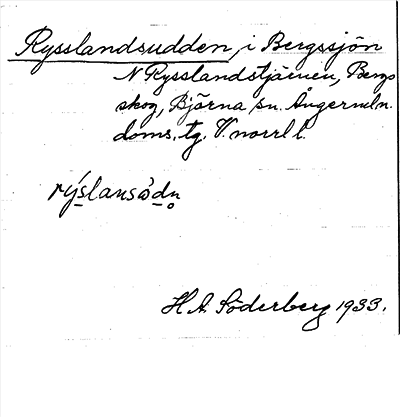 Rysslandsudden, i Bergssjön
N Rysslandstjärnen, Bergs
skog, Björna sn. Ångermln.
doms. tg. V. norrl l.
rýslansòdn̥
H. A. Söderberg 1933.